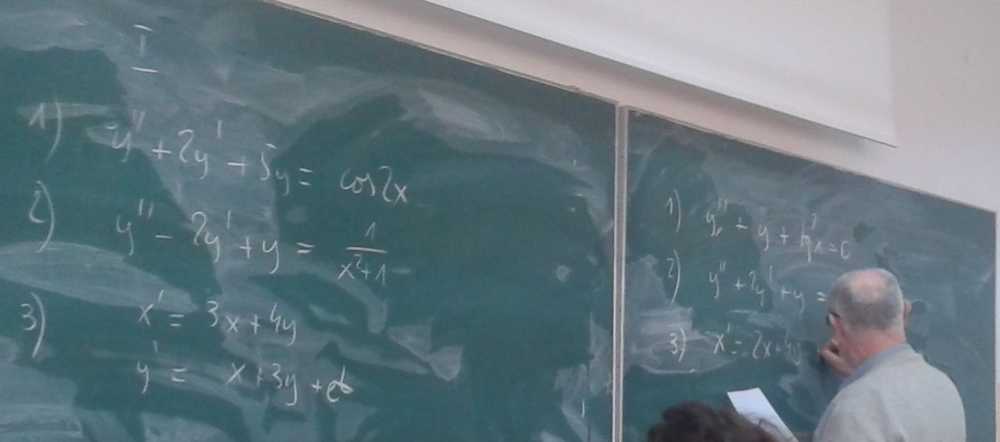 I
1) y'' + 2y' + 5y = cos2x
2) y'' - 2y' + y = 1/(x²+1)
3) x' = 3x+4y
y' = x+3y+et
1) y'' + y + tg²x=0
2) y'' + 2y' + y =
3) x' = 2x